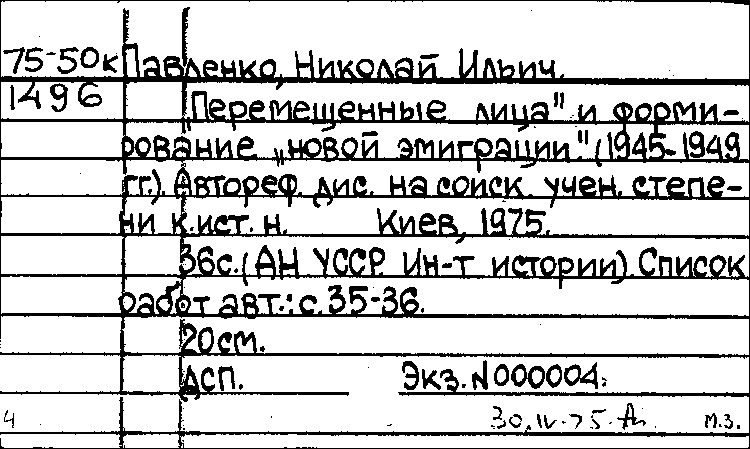 75-50к Павленко, Николай Ильич.
1496 "Перемещенные лица" и форми-
рование „новой эмиграции." (1945-1949
гг.). Автореф. дис. на соиск. учен. степе-
ни к.ист. н. Киев, 1975.
36с. (АН УССР. Ин-т истории). Список
работ авт.: с. 35-36.
20см.
ДСП. Экз. №000004.
4 30.IV.75. М.З.